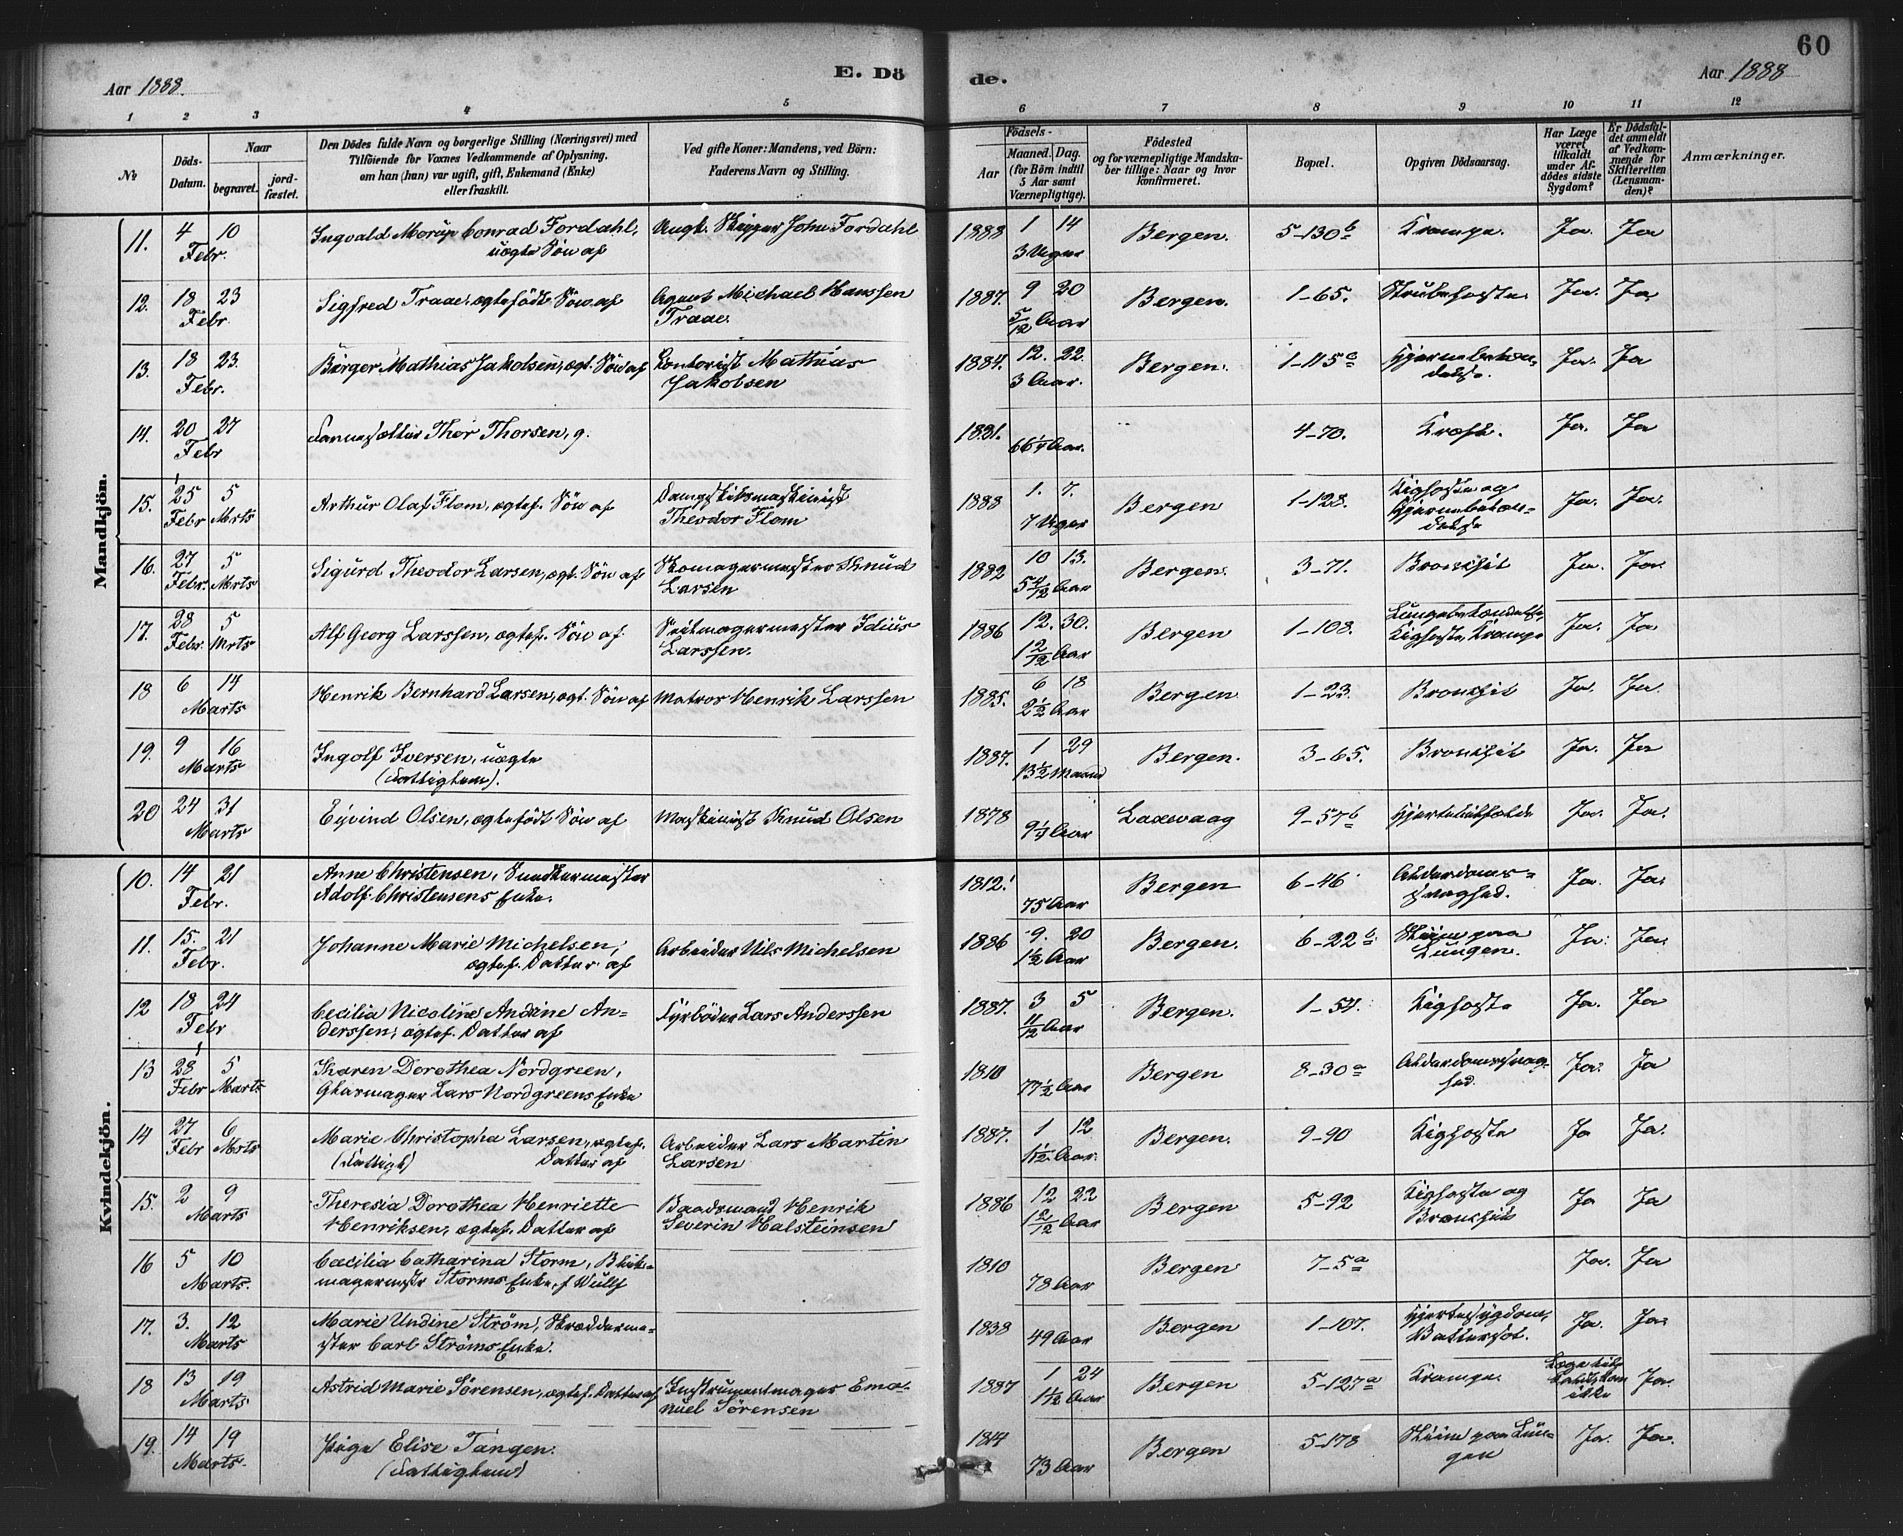 60
Aar 1888. E. Döde. Aar 1888
1 2 3 4 5 6 7 8 9 10 11 12
№ Döds-Datum. Naar begravet. jordfæstet. Den Dödes fulde Navn og borgerlige Stilling (Næringsvei) med Tilföiende for Voxnes Vedkommende af Oplysning, om han (hun) var ugift, gift, Enkemand (Enke) eller fraskilt. Ved gifte Koner: Mandens, ved Börn: Faderens Navn og Stilling. Födsels- Aar Maaned. Dag. (for Börn indtil 5 Aar samt Værnepligtige). Födested og for værnepligtige Mandskaber tillige: Naar og hvor konfirmeret. Bopæl. Opgiven Dödsaarsag. Har Læge været tilkaldt under Afdödes sidste Sygdom? Er Dödsfaldet anmeldt af Vedkommende for Skifteretten (Lensmanden)? Anmærkninger.
Mandkjön.
11. 4 Febr. 10 Ingvald Morup Conrad Fordahl, uægte Sön af Ungk. Skipper John Fordahl 1888 1 14 3 Uger Bergen. 5-130 b Krampe. Ja. Ja
12. 18 Febr. 23 Sigfred Traae, ægtefödt Sön af Agent Michael Hanssen Traae. 1887. 9 20 5/12 Aar Bergen. 1-65. Strubehoste. Ja. Ja.
13. 18 Febr. 23. Birger Mathias Jakobsen, ægt. Sön af Kontorist Mathias Jakobsen 1884. 12. 22. 3 Aar. Bergen. 1-115 a Hjernebetændelse. Ja. Ja
14. 20 Febr 27 Thor Thorsen, g. 1821. 66 1/4 Aar. 4-70. Kræft. Ja. Ja
15. 25 Febr 5 Mrts Arthur Olaf Flom, ægtef. Sön af Dampskibsmaskinist Theodor Flom 1888 1. 7. 7 Uger Bergen 1-128. Kighoste og Hjernebetændelse Ja. Ja.
16. 27 Febr. 5 Mrts Sigurd Theodor Larsen, ægt. Sön af Skomagermester Knud Larsen 1882 10 13. 5 4/12 Aar Bergen. 3-71. Bronchit Ja. Ja.
17. 28 Febr. 5 Mrts Alf Georg Larssen, ægtef. Sön af Seilmagermester Idius Larssen. 1886 12. 30. 1 2/12 Aar Bergen 1-108. Lungebetændelse, Kighoste, Krampe Ja. Ja
18 6 Marts 14 Henrik Bernhard Larsen, ægt. Sön af Matros Henrik Larssen 1885. 6 18 2 1/2 Aar Bergen 1-23. Bronchit Ja. Ja.
19. 9 Marts 16 Ingolf Iversen, uægte (Fattiglem). 1887. 1 29 13 1/2 Maaned Bergen. 3-65. Bronchit Ja. Ja
20 24 Marts 31 Eyvind Olsen, ægtefödt Sön af Maskinist Knud Olsen 1878 9 1/4 Aar Laxevaag 9-57 b Hjerte Ja. Ja.
Kvindekjön.
10. 14 Febr. 21 Anne Christensen, Snedkermester Adolf Christensens Enke. 1812. 75 Aar Bergen 6-46 Alderdomssvaghed. Ja. Ja.
11. 15. Febr. 21 Johanne Marie Michelsen, ægtef. Datter af Arbeider Nils Michelsen 1886 9. 20 1 1/2 Aar Bergen. 6-22 b Sliim paa Lungen. Ja. Ja.
12 18 Febr 24 Cecilia Nicoline Andine Anderssen, ægtef. Datter af Fyrböder Lars Anderssen 1887. 3 5 11/12 Aar Bergen. 1-54. Kighoste Ja. Ja
13 28 Febr 5 Marts Karen Dorothea Nordgreen, Glarmager Lars Nordgreens Enke 1810 77 1/2 Aar Bergen 8-30 a Alderdomssvaghed. Ja. Ja
14 27 Febr 6 Mrts Marie Christopha Larsen, ægtef. (Fattigt) Datter af Arbeider Lars Martin Larsen 1887. 1 12 1 1/12 Aar. Bergen. 9-90 Kighoste Ja Ja.
15. 2 Marts 9 Theresia Dorothea Henriette Henriksen, ægtef. Datter af Baadsmand Henrik Severin Halsteinsen 1886 12 22 1 2/12 Aar Bergen 5-92 Kighoste og Bronchit Ja Ja
16 5 Marts. 10 Cæcilia Catharina Storm, Blikmagermester Storms Enke, f Wulff 1810 78 Aar Bergen 7-5 a Ja. Ja
17. 3. Marts 12 Marie Undine Ström, Skræddermester Carl Ströms Enke. 1838 49 Aar Bergen 1-107. Hjertesygdom, Vattersot. Ja. Ja.
18 13 Marts 19 Astrid Marie Sörensen, ægtef. Datter af Instrumentmager Emanuel Sörensen 1887 1 24 1 1/12 Aar Bergen 5-127 a Krampe Læge kom ikke Ja.
19. 14 Marts. 19 Pige Elise Tangen. (Fattiglem) 1814 73 Aar Bergen 5-178 Sliim paa Lungen Ja. Ja.